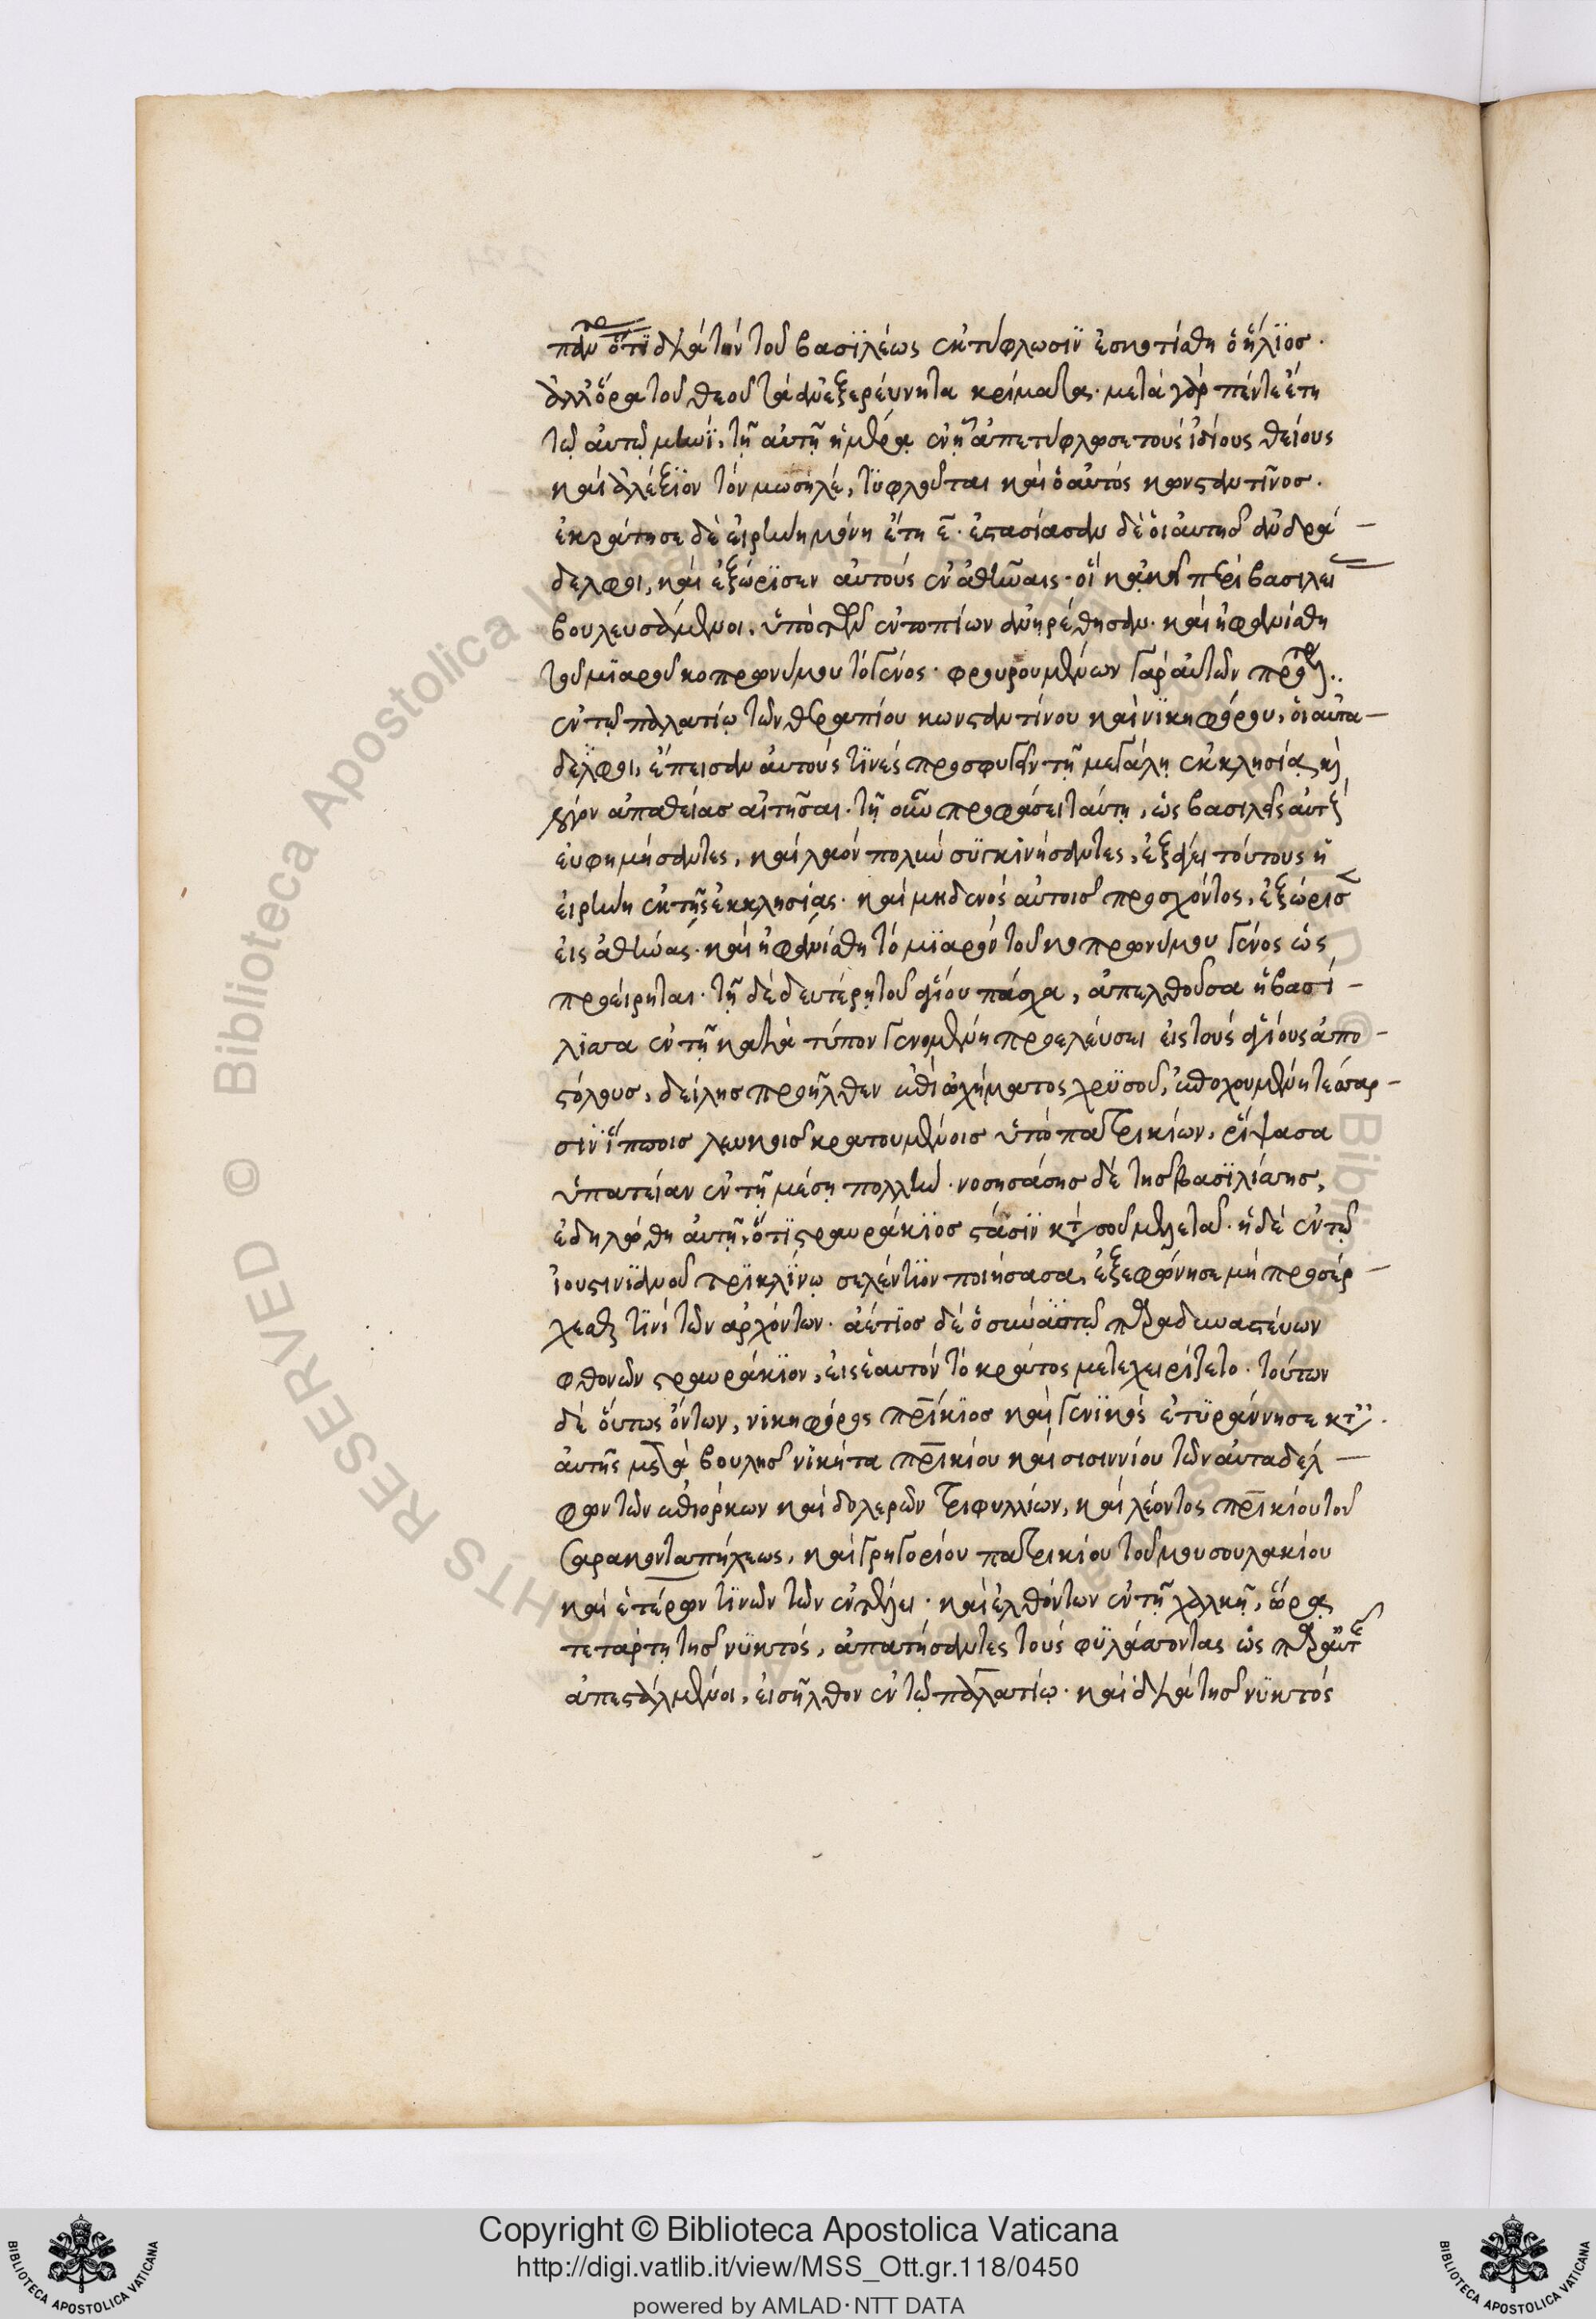 πάντων ὅτι διὰ τὴν τοῦ βασϊλέως ἐκτύφλωσιν ἐσκοτίσθη ὁ ἥλϊος.
ἀλλ' ὅρα τοῦ θεοῦ τὰ ἀνεξερεύνητα κρίματα. μετὰ γὰρ πέντε ἔτη
τῷ αὐτῷ μηνϊ, τῇ αὐτῇ ἡμέρᾳ ἐν ᾗ ἀπετύφλωσε τοὺς ἰδίους θείους
καὶ ἀλέξϊον τὸν μωσηλὲ, τυφλοῦται καὶ ὁ αὐτὸς κωνσταντῖνος.
ἐκράτησε δὲ εἰρήνη μόνη ἔτη ε̄. ἐστασίασαν δὲ οἱ αὐτῆς ἀνδρά-
δελφοι, καὶ ἐξώρϊσεν αὐτοὺς ἐν ἀθήναις. οἳ κἀκεῖ περὶ βασιλεί
βουλευσάμενοι, ὑπὸ τῶν ἐντοπίων ἀνηρέθησαν. καὶ ἠφανίσθη
τοῦ μϊαροῦ κοπρωνύμου τὸ γένος. φρουρουμένων γὰρ αὐτῶν
ἐν τῷ παλατίῳ τῶν θεραπίου κωνσταντίνου καὶ νϊκηφόρου, οἱ αὐτα-
δέλφοι, ἔπεισαν αὐτοὺς τινὲς προσφυγεῖν τῇ μεγάλῃ ἐκκλησίᾳ καὶ
λόγον ἀπαθείας αἰτῆσαι. τῇ οὖν προφάσει ταύτῃ, ὡς βασιλεῖς αὐτοὺς
εὐφημήσαντες, καὶ λαὸν πολὺν συγκινήσαντες, ἐξάγει τούτους ἡ
εἰρήνη ἐκ τῆς ἐκκλησίας. καὶ μηδενὸς αὐτοῖς προσχόντος, ἐξώρισε
εἰς ἀθήνας. καὶ ἠφανίσθη τὸ μϊαρὸν τοῦ κοπρωνύμου γένος ὡς
προείρηται. τῇ δὲ δευτέρᾳ τοῦ ἁγίου πάσχα, ἀπελθοῦσα ἡ βασί-
λϊσσα ἐν τῇ κατὰ τύπον γενομένῃ προελεύσει εἰς τοὺς ἁγίους ἀπο-
στόλους, δείλης προῆλθεν ἐπὶ ὀχήματος χρϋσοῦ, ἐποχουμένη τέσσαρ-
σιν ἵπποις λευκοῖς κρατουμένοις ὑπὸ πατρικίων, ῥίψασα
ὑπατείαν ἐν τῇ μέσῃ πολλήν. νοσησάσης δὲ τῆς βασϊλίσσης,
ἐδηλώθη αὐτῇ, ὅτι σταυράκϊος στάσιν κατὰ σοῦ μελετᾷ. ἡ δὲ ἐν τῷ
ἰουστινϊανοῦ τρϊκλίνῳ σελέντϊον ποιήσασα, ἐξεφώνησε μὴ προσέρ-
χεσθαι τινὶ τῶν ἀρχόντων. ἀέτϊος δὲ ὁ σὺν αὐτῷ παραδυναστεύων
φθονῶν σταυράκϊον, εἰς ἑαυτὸν τὸ κράτος μετεχειρίζετο. τούτων
δὲ οὕτως ὄντων, νικηφόρος πρίκϊος καὶ γενϊκὸς ἐτυράννησε κατ'
αὐτῆς μετὰ βουλῆς νικήτα πρικίου καὶ σισιννίου τῶν αὐταδέλ-
φων τῶν ἐπιόρκων καὶ δολερῶν τριφυλλίων, καὶ λέοντος πρικίου τοῦ
σαρακονταπήχεως, καὶ γρηγορίου πατρικίου τοῦ μουσουλακίου
καὶ ἑτέρων τινῶν τῶν ἐν τέλει. καὶ ἐλθόντων ἐν τῇ χαλκῇ, ὥρᾳ
τετάρτῃ τῆς νϋκτός, ἀπατήσαντες τοὺς φϋλάσσοντας ὡς παρ' αὐτῆς
ἀπεσταλμένοι, εἰσῆλθον ἐν τῷ παλατίῳ. καὶ διὰ τῆς νϋκτὸς
Copyright © Biblioteca Apostolica Vaticana
http://digi.vatlib.it/view/MSS_Ott.gr.118/0450
powered by AMLAD·NTT DATA